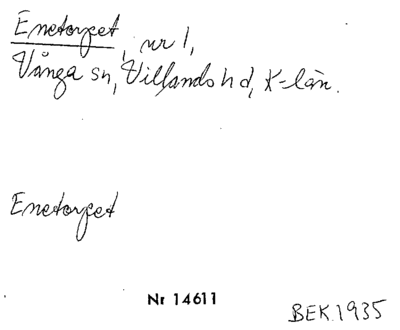 Enetorpet, nr 1,
Vånga sn, Villands hd, K-län.
Enetorpet
Nr 14611
BEK 1935